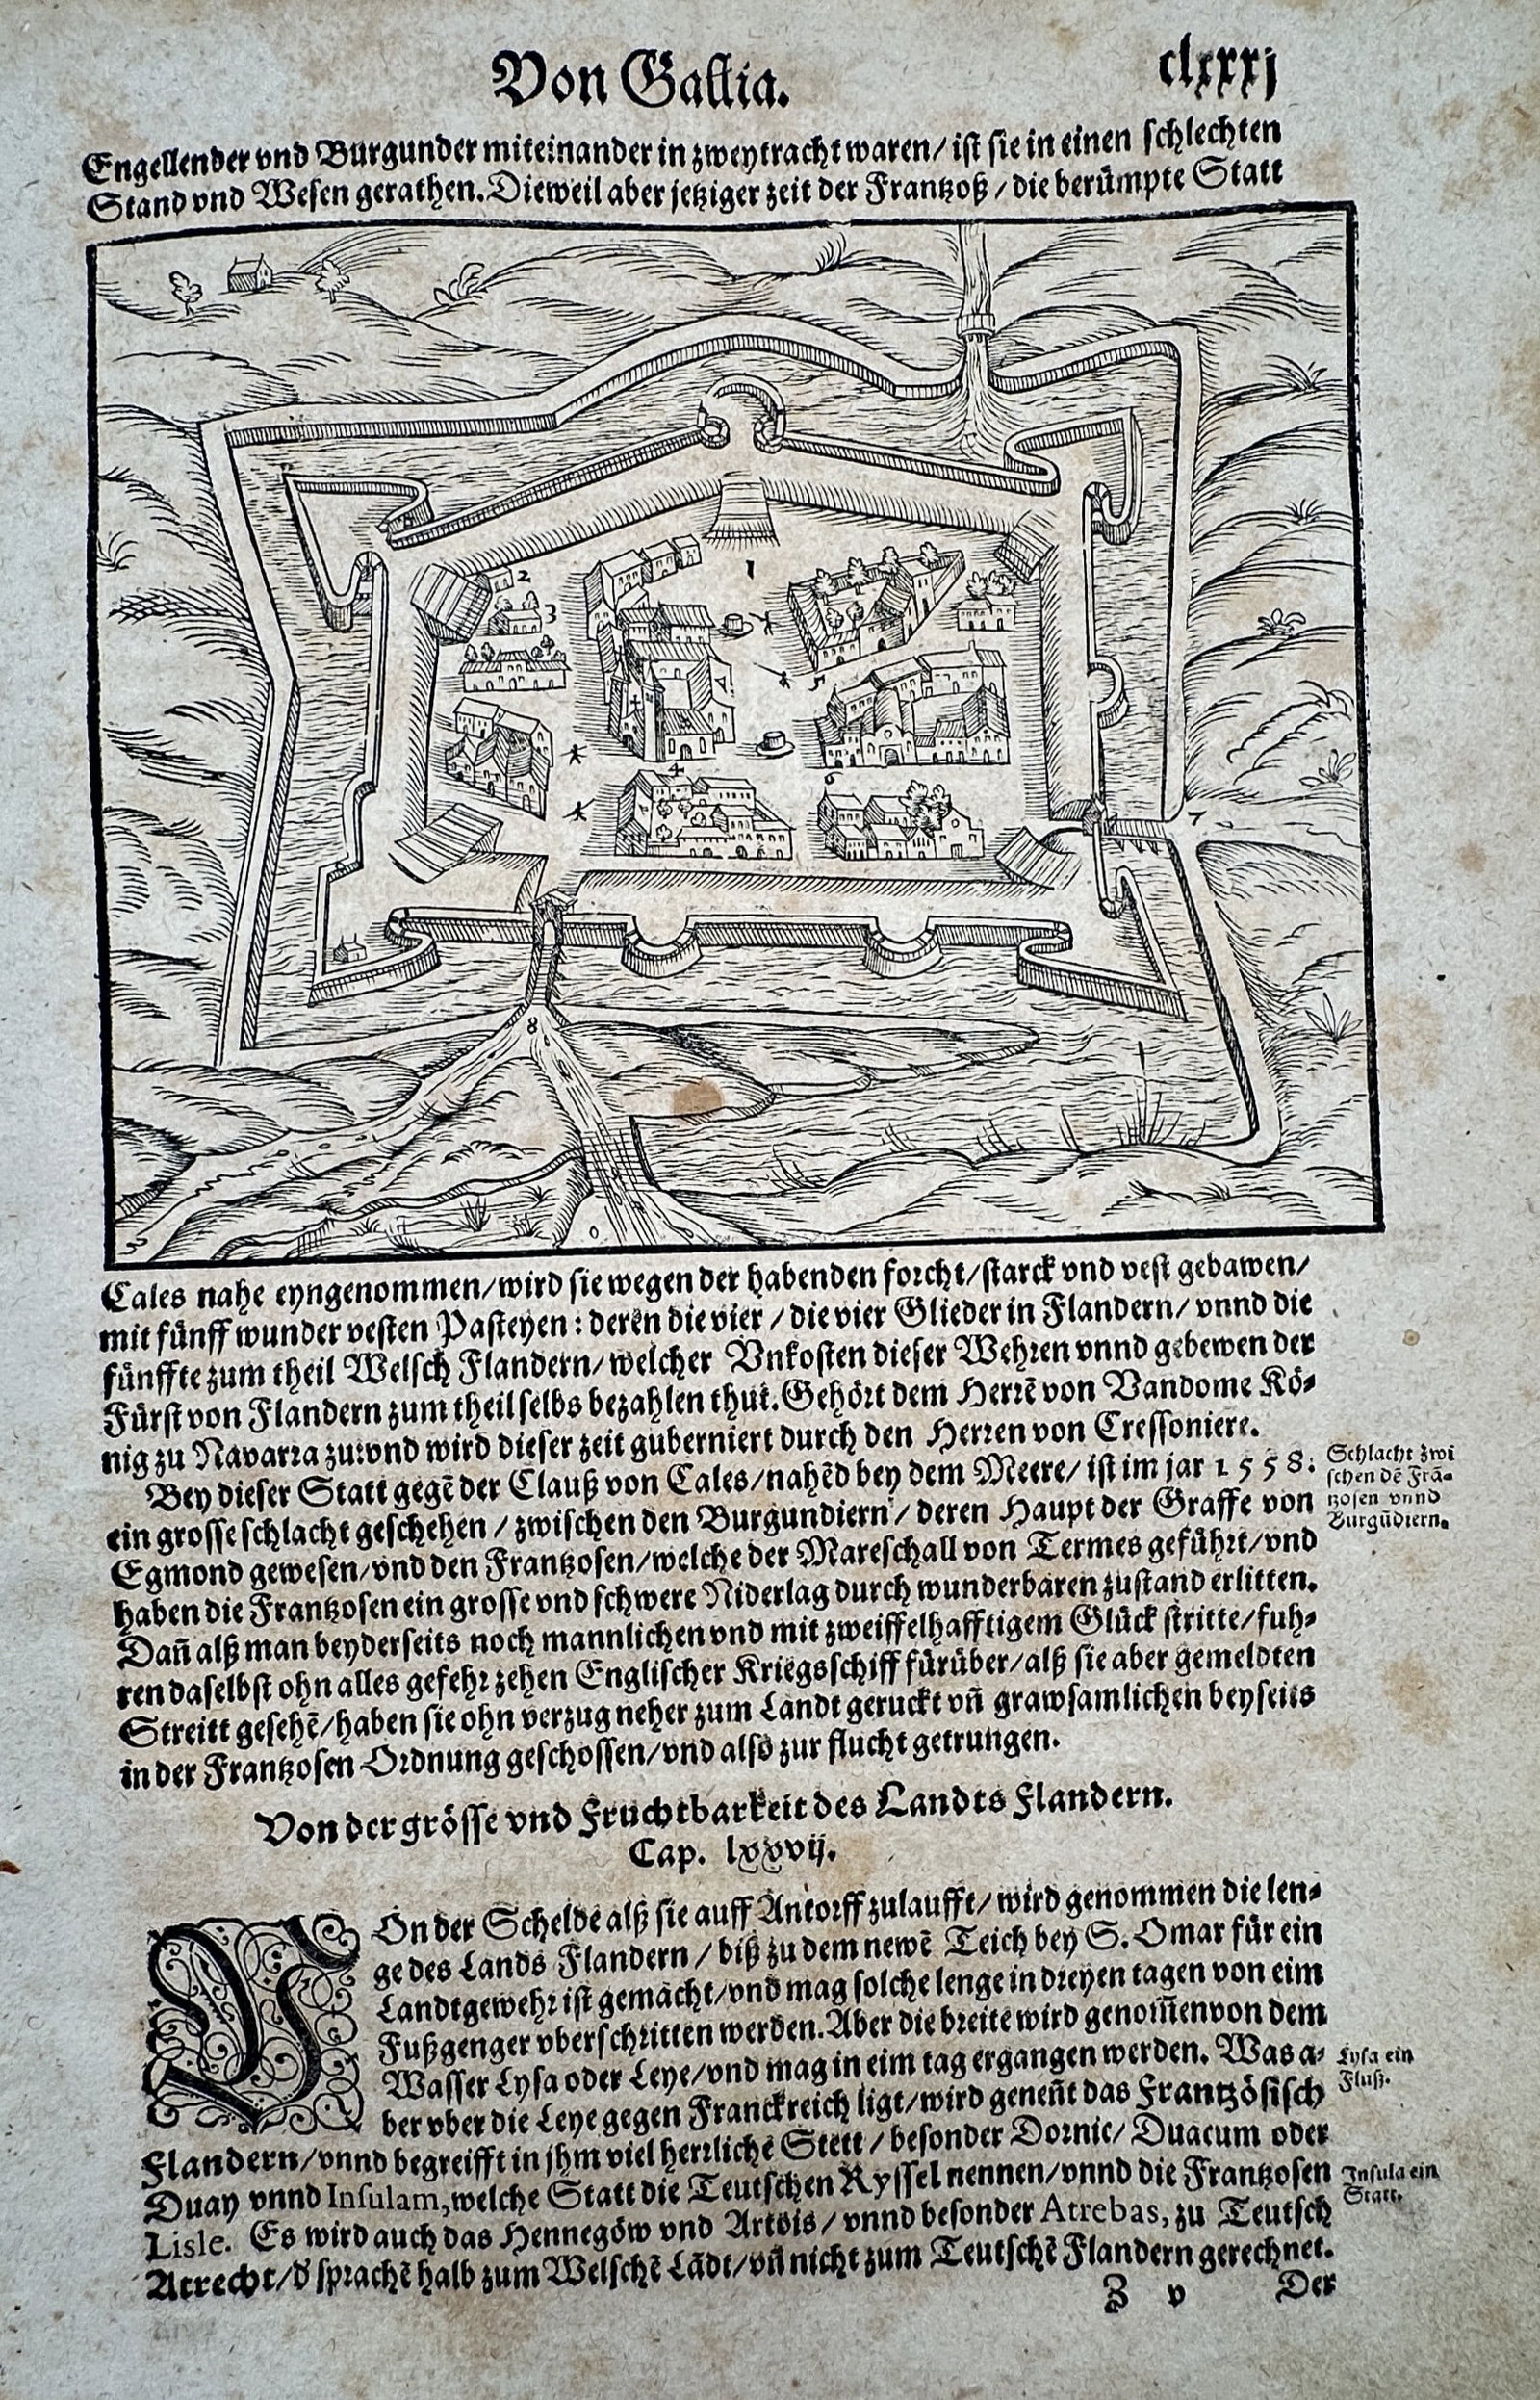 Von Gallia.
clxxxj
Engellender vnd Burgunder miteinander in zweytracht waren/ ist sie in einen schlechten
Stand vnd Wesen gerathen. Dieweil aber jetziger zeit der Frantzoß / die berümpte Statt
1
2
3
4
5
6
7
8
Cales nahe eyngenommen/wird sie wegen der habenden forcht/starck vnd vest gebawen/
mit fünff wunder vesten Pasteyen: deren die vier / die vier Glieder in Flandern/ vnnd die
fünffte zum theil Welsch Flandern/welcher Vnkosten dieser Wehren vnnd gebewen der
Fürst von Flandern zum theil selbs bezahlen thut. Gehört dem Herrē von Vandome Kö-
nig zu Navarra zu:vnd wird dieser zeit guberniert durch den Herren von Cressoniere.
Bey dieser Statt gegē der Clauß von Cales/nahēd bey dem Meere/ ist im jar 1558.
ein grosse schlacht geschehen / zwischen den Burgundiern / deren Haupt der Graffe von
Egmond gewesen/vnd den Frantzosen/welche der Mareschall von Termes geführt/vnd
haben die Frantzosen ein grosse vnd schwere Niderlag durch wunderbaren zustand erlitten.
Dañ alß man beyderseits noch mannlichen vnd mit zweiffelhafftigem Glück stritte/fuh-
ren daselbst ohn alles gefehr zehen Englischer Kriegsschiff fürüber/alß sie aber gemeldten
Streitt gesehē/haben sie ohn verzug neher zum Landt geruckt vñ grawsamlichen beyseits
in der Frantzosen Ordnung geschossen/vnd also zur flucht getrungen.
Schlacht zwi
schen dē Frā-
tzosen vnnd
Burgūdiern.
Von der grösse vnd Fruchtbarkeit des Landts Flandern.
Cap. lxxvij.
VOn der Schelde alß sie auff Antorff zulaufft/ wird genommen die len-
ge des Lands Flandern / biß zu dem newē Teich bey S. Omar für ein
Landtgewehr ist gemacht/vnd mag solche lenge in dreyen tagen von eim
Fußgenger vberschritten werden. Aber die breite wird genom̄en von dem
Wasser Lysa oder Leye/vnd mag in eim tag ergangen werden. Was a-
ber vber die Leye gegen Franckreich ligt/wird geneñt das Frantzösisch
Flandern/vnnd begreifft in jhm viel herrlichē Stett / besonder Dornic/ Duacum oder
Duay vnnd Insulam, welche Statt die Teutschen Ryssel nennen/vnnd die Frantzosen
Lisle. Es wird auch das Hennegöw vnd Artois / vnnd besonder Atrebas, zu Teutsch
Atrecht/ď sprachē halb zum Welschē Lādt/vñ nicht zum Teutschē Flandern gerechnet.
Lysa ein
Fluß.
Insula ein
Statt.
Z v
Der